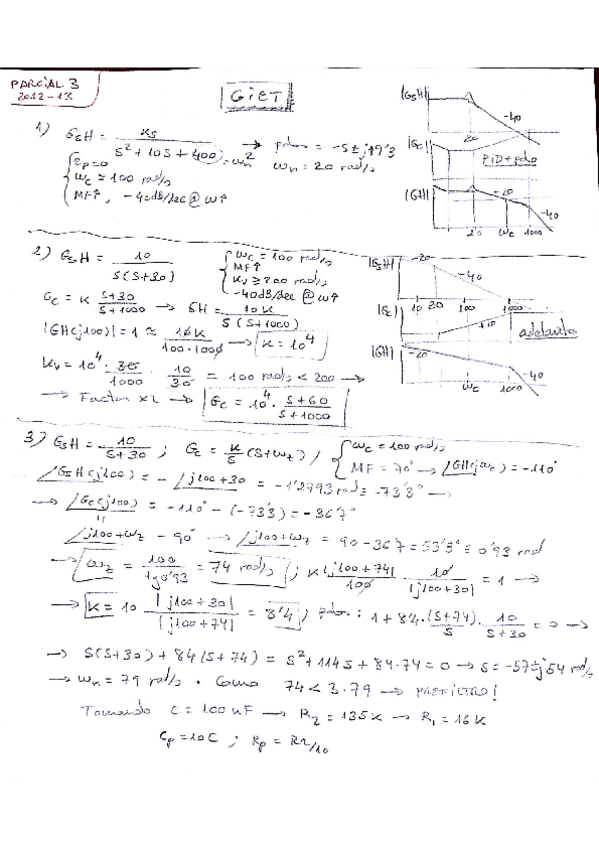 PARCIAL 3
2012-13
GIET
1) GsH = Ks / (s² + 10s + 400) → polos = -5 ± j19'3
ωn² ωn = 20 rad/s
ep=0
ωc = 100 rad/s
MF↑, -40dB/dec @ ω↑
|GsH| -40 20
|Gc| PID+polo
|GH| -20 -40 20 ωc 1000
2) GsH = 10 / (s(s+30))
ωc = 100 rad/s
MF↑
Kv ≥ 200 rad/s
-40dB/dec @ ω↑
Gc = K (s+30)/(s+1000) → GH = 10K / (s(s+1000))
|GH(j100)| = 1 ≈ 10K / (100·1000) → K = 10⁴
Kv = 10⁴ · 30/1000 · 10/30 = 100 rad/s < 200 →
→ Factor x2 → Gc = 10⁴ · (s+60)/(s+1000)
|GsH| -20 -40 10 20 100 1000
|Gc| +20 adelanto
|GH| -20 ωc 1000 -40
3) GsH = 10/(s+30) ; Gc = K/s (s+ωz) / ωc = 100 rad/s
MF = 70° → ∠GH(jωc) = -110°
∠GsH(j100) = - ∠j100+30 = -1'2793 rad = -73'3° →
→ ∠Gc(j100) = -110° - (-73'3) = -36'7°
∠j100+ωz - 90° → ∠j100+ωz = 90 - 36'7 = 53'3° = 0'93 rad
→ ωz = 100 / tg0'93 = 74 rad/s ; K |j100+74| / 100 · 10 / |j100+30| = 1 →
→ K = 10 |j100+30| / |j100+74| = 8'4 ; polos: 1 + 8'4 · (s+74)/s · 10/(s+30) = 0 →
→ s(s+30) + 84(s+74) = s² + 114s + 84·74 = 0 → s = -57 ± j54 rad/s
→ ωn = 79 rad/s. Como 74 < 3·79 → PREFILTRO!
Tomando C = 100nF → R2 = 135K → R1 = 16K
Cp = 10C ; Rp = R2/10